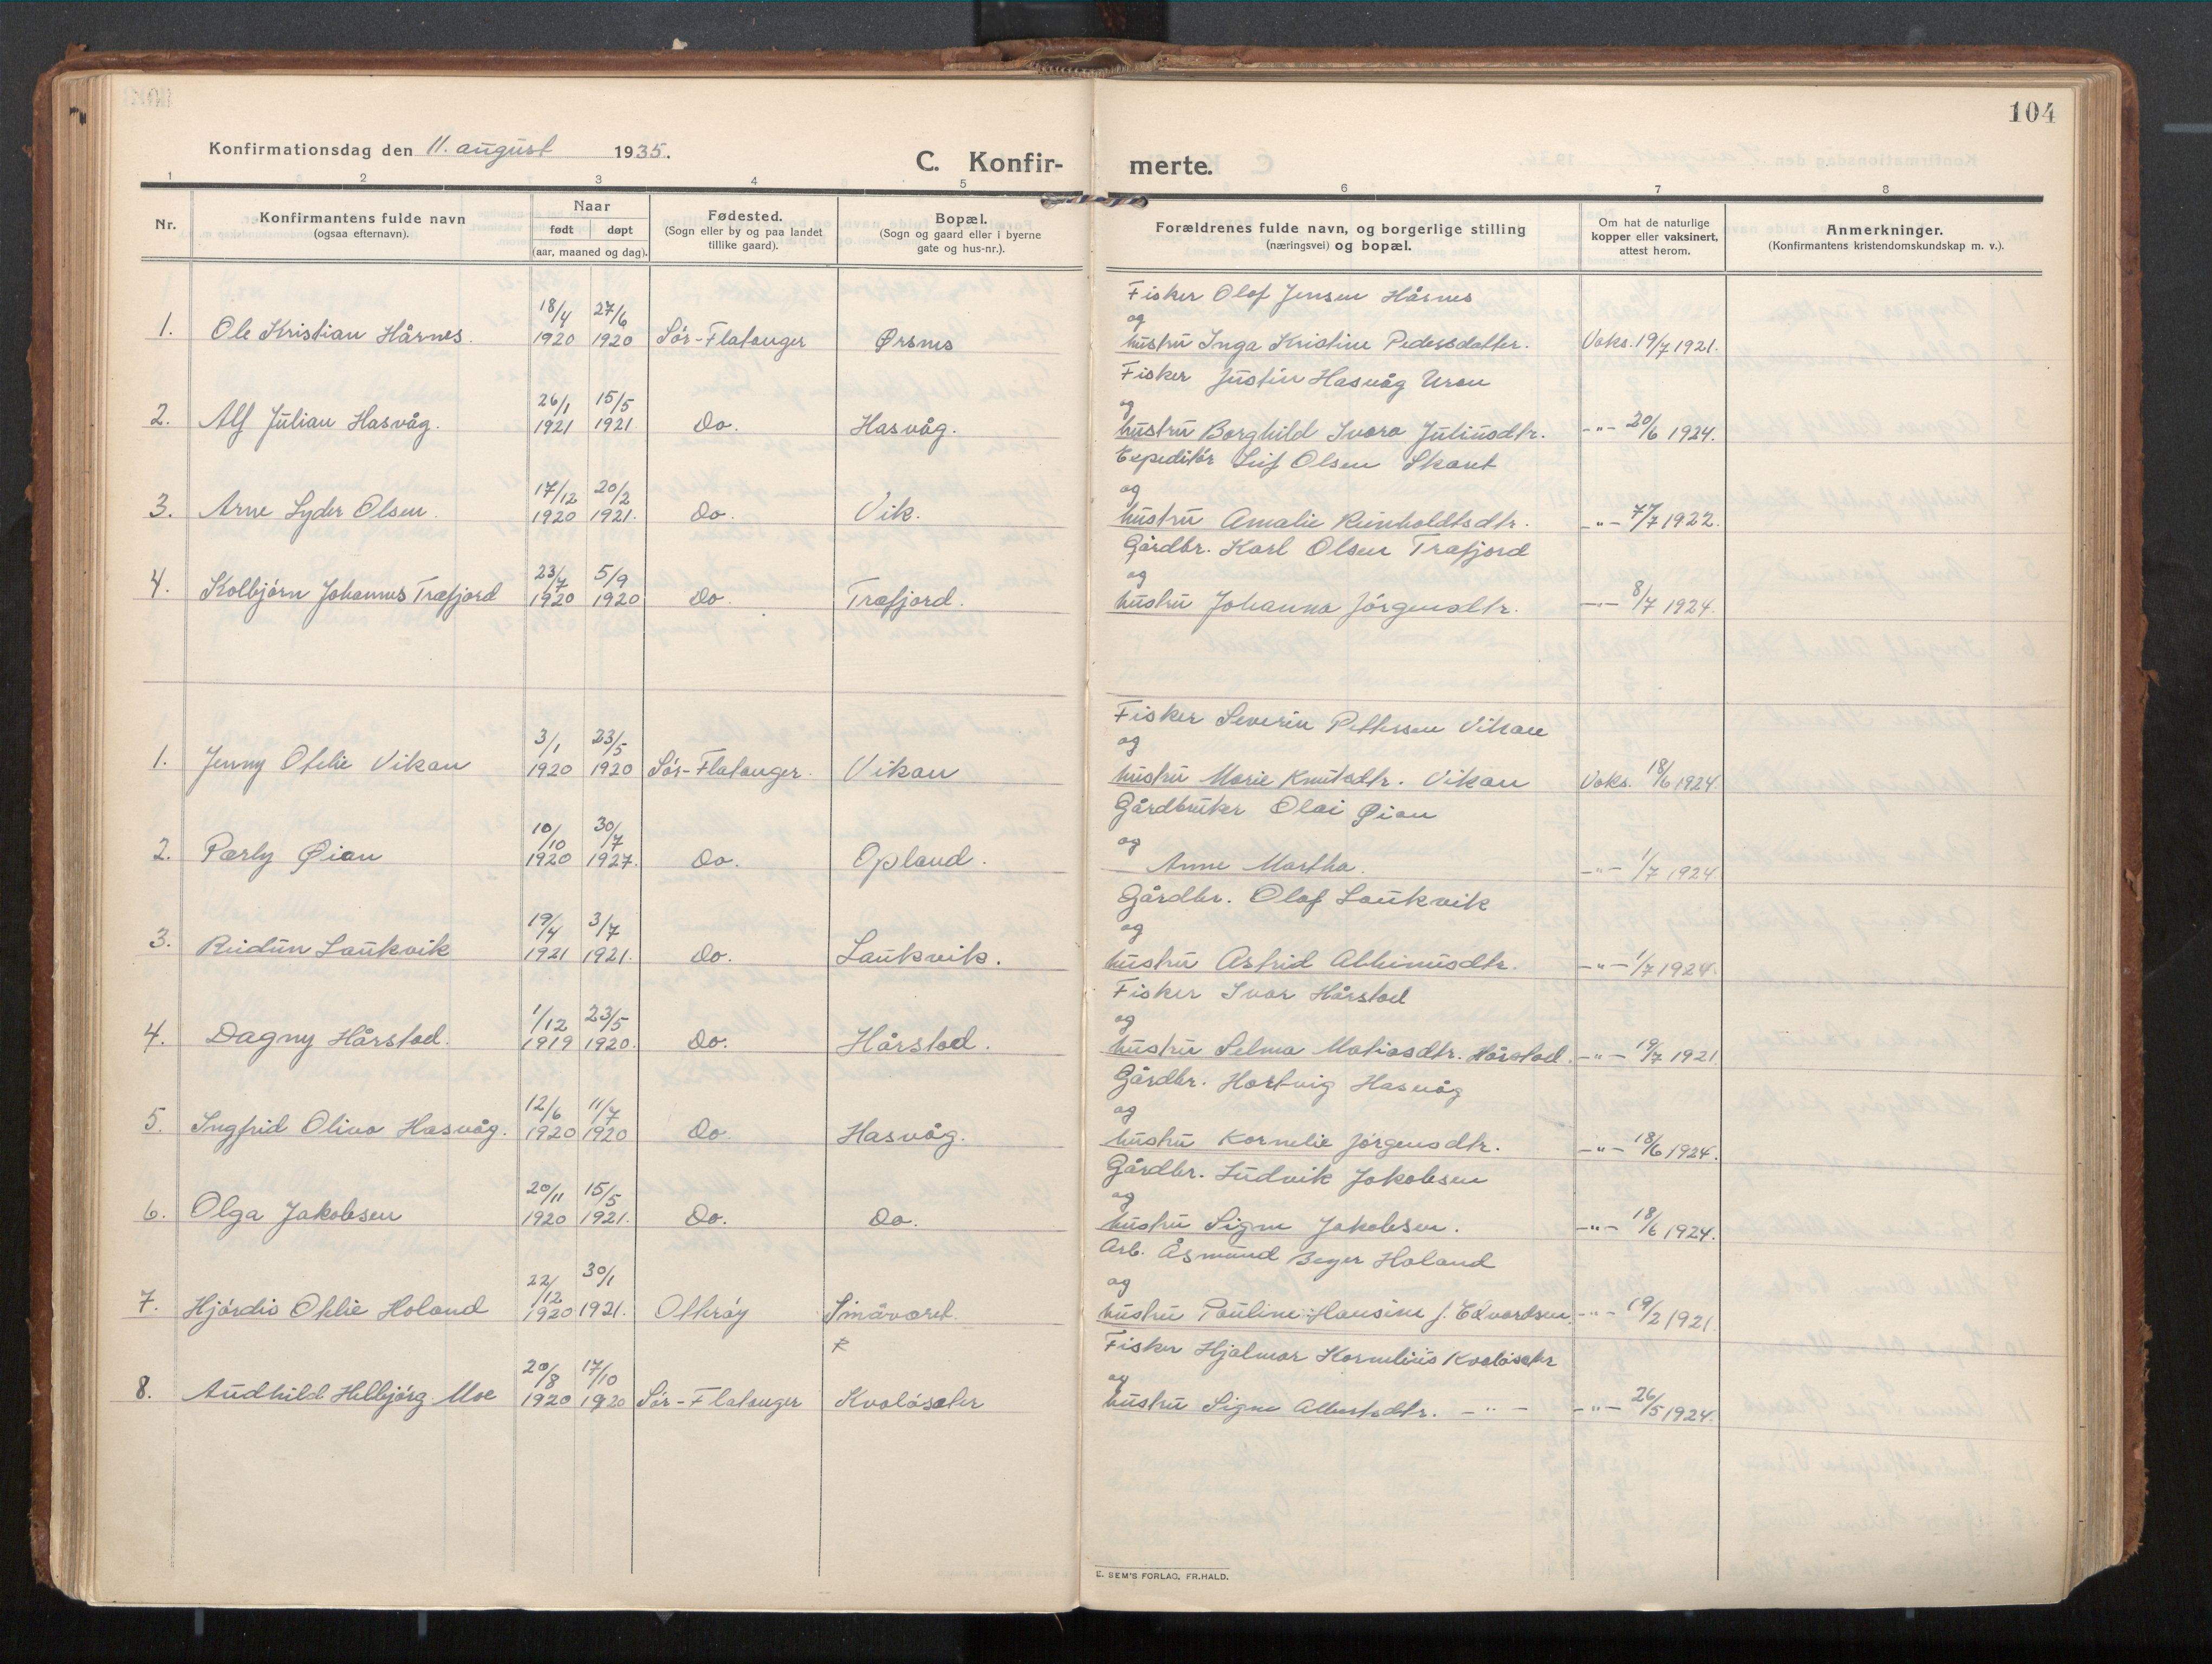 104
Konfirmationsdag den 11. august 1935.
C. Konfir- merte.
1 2 3 4 5 6 7 8
Nr.
Konfirmantens fulde navn
(ogsaa efternavn).
Naar
født døpt
(aar, maaned og dag).
Fødested.
(Sogn eller by og paa landet
tillike gaard).
Bopæl.
(Sogn og gaard eller i byerne
gate og hus-nr.).
Forældrenes fulde navn, og borgerlige stilling
(næringsvei) og bopæl.
Om hat de naturlige
kopper eller vaksinert,
attest herom.
Anmerkninger.
(Konfirmantens kristendomskundskap m. v.).
18/4 27/6 Fisker Olof Jensen Hårnes
og
1. Ole Kristian Hårnes. 1920 1920 Sør-Flatanger Ørsnes hustru Inga Kristine Pedersdatter. Vaks. 19/7 1921.
26/1 15/5 Fisker Justin Hasvåg Uran
og
2. Alf Julian Hasvåg. 1921 1921. Do. Hasvåg. hustru Borghild Ivara Juliusdtr. -"- 20/6 1924.
17/12 20/2 Expeditør Leif Olsen
og
3. Arne Lyder Olsen. 1920 1921. Do. Vik. hustru Amalie Reinholdtsdtr. -"- 7/7 1922.
23/7 5/9 Gårdbr. Karl Olsen Træfjord
og
4. Kolbjørn Johannes Træfjord 1920 1920 Do. Træfjord. hustru Johanna Jørgensdtr. -"- 8/7 1924.
3/1 23/5 Fisker Severin Pettersen Vikan
og
1. Jenny Otelie Vikan 1920 1920 Sør-Flatanger. Vikan hustru Marie Knutsdtr. Vikan Vaks. 18/6 1924.
10/10 30/7 Gårdbruker Olai Øian
og
2. Pærly Øian 1920 1927. Do. Opland. Anne Martha. -"- 1/7 1924.
19/4 3/7 Gårdbr. Olaf Laukvik
og
3. Reidun Laukvik 1921 1921. Do. Laukvik. hustru Astrid Albinusdtr. -"- 1/7 1924.
1/12 23/5 Fisker Ivar Hårstad
og
4. Dagny Hårstad. 1919 1920. Do. Hårstad. hustru Selma Matiasdtr. Hårstad. -"- 19/7 1921
12/6 11/7 Gårdbr. Hartvig Hasvåg
og
5. Ingfrid Oliva Hasvåg. 1920 1920 Do. Hasvåg. hustru Kornelie Jørgensdtr. -"- 18/6 1924.
20/11 15/5 Gårdbr. Ludvik Jakobsen
og
6. Olga Jakobsen 1920 1921. Do. Do. hustru Signe Jakobsen. -"- 18/6 1924.
22/12 30/1 Arb. Åsmund Beyer Holand
og
7. Hjørdis Otelie Holand 1920 1921. Otterøy Småværet. hustru Pauline Hansine f. Edvardsen. -"- 19/2 1921.
20/8 17/10 Fisker Hjalmar Kornelius Kvaløseter
og
8. Audhild Helbjørg Moe 1920 1920 Sør-Flatanger Kvaløseter hustru Signe Albertsdtr. -"- -"- 26/5 1924.
E. SEM'S FORLAG, FR.HALD.